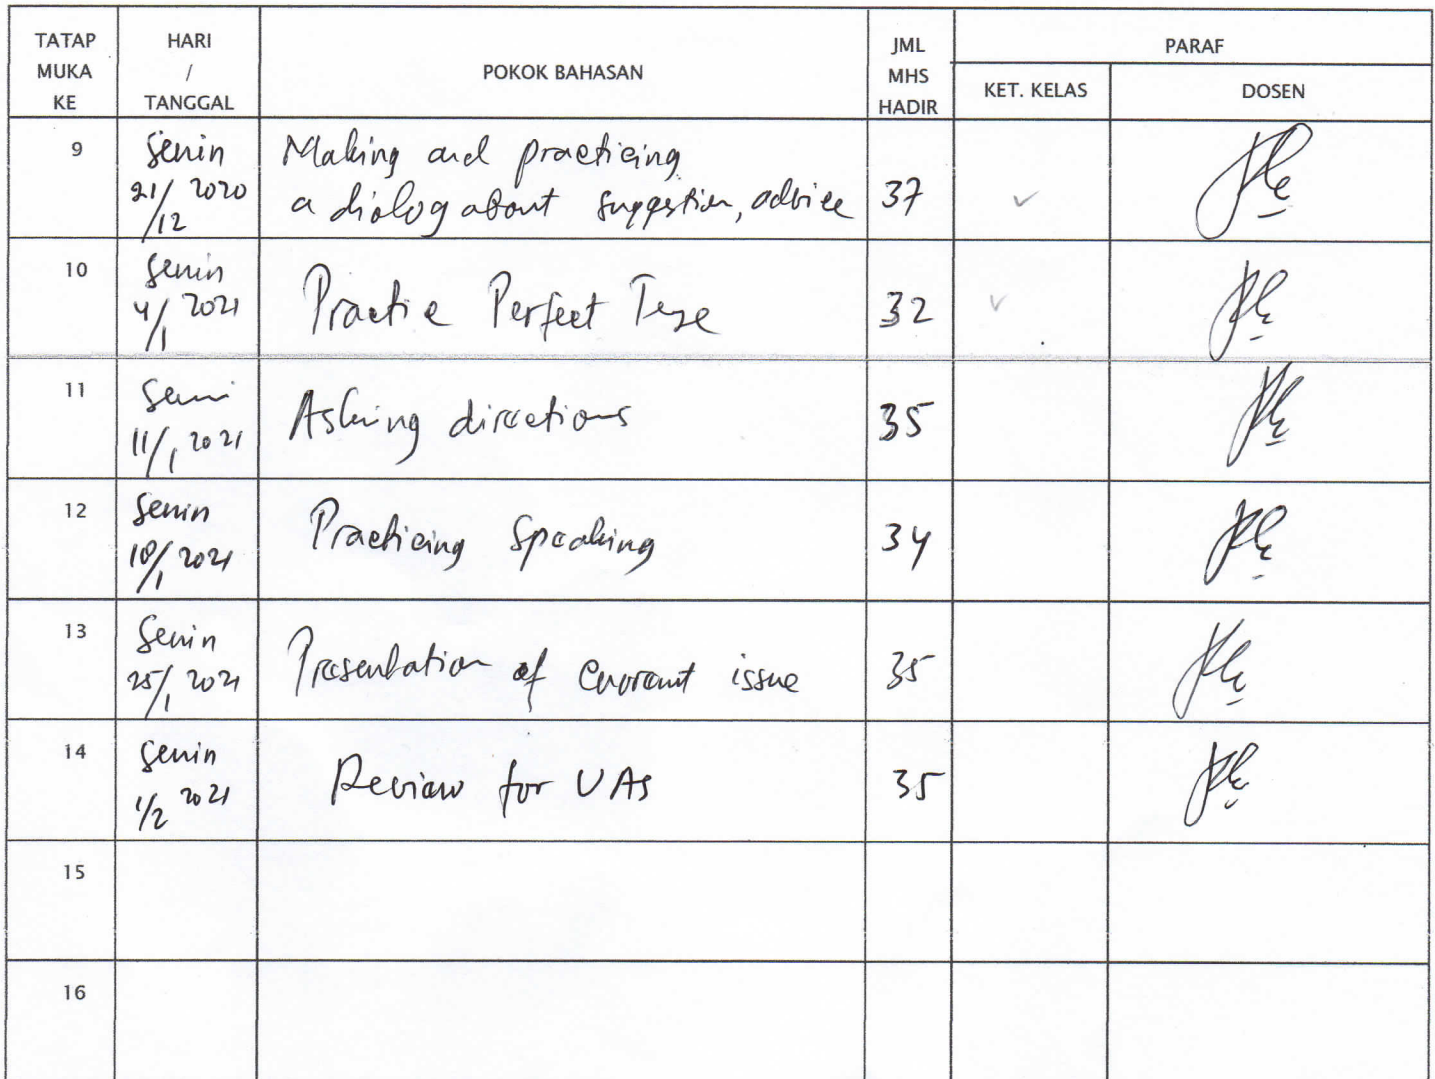 TATAP MUKA KE
HARI / TANGGAL
POKOK BAHASAN
JML MHS HADIR
PARAF
KET. KELAS
DOSEN
9
Senin
21/12 2020
Making and practicing
a dialog about suggestion, advice
37
10
Senin
4/1 2021
Practice Perfect Tense
32
11
Senin
11/1 2021
Asking directions
35
12
Senin
18/1 2021
Practicing Speaking
34
13
Senin
25/1 2021
Presentation of current issue
35
14
Senin
1/2 2021
Review for UAS
35
15
16